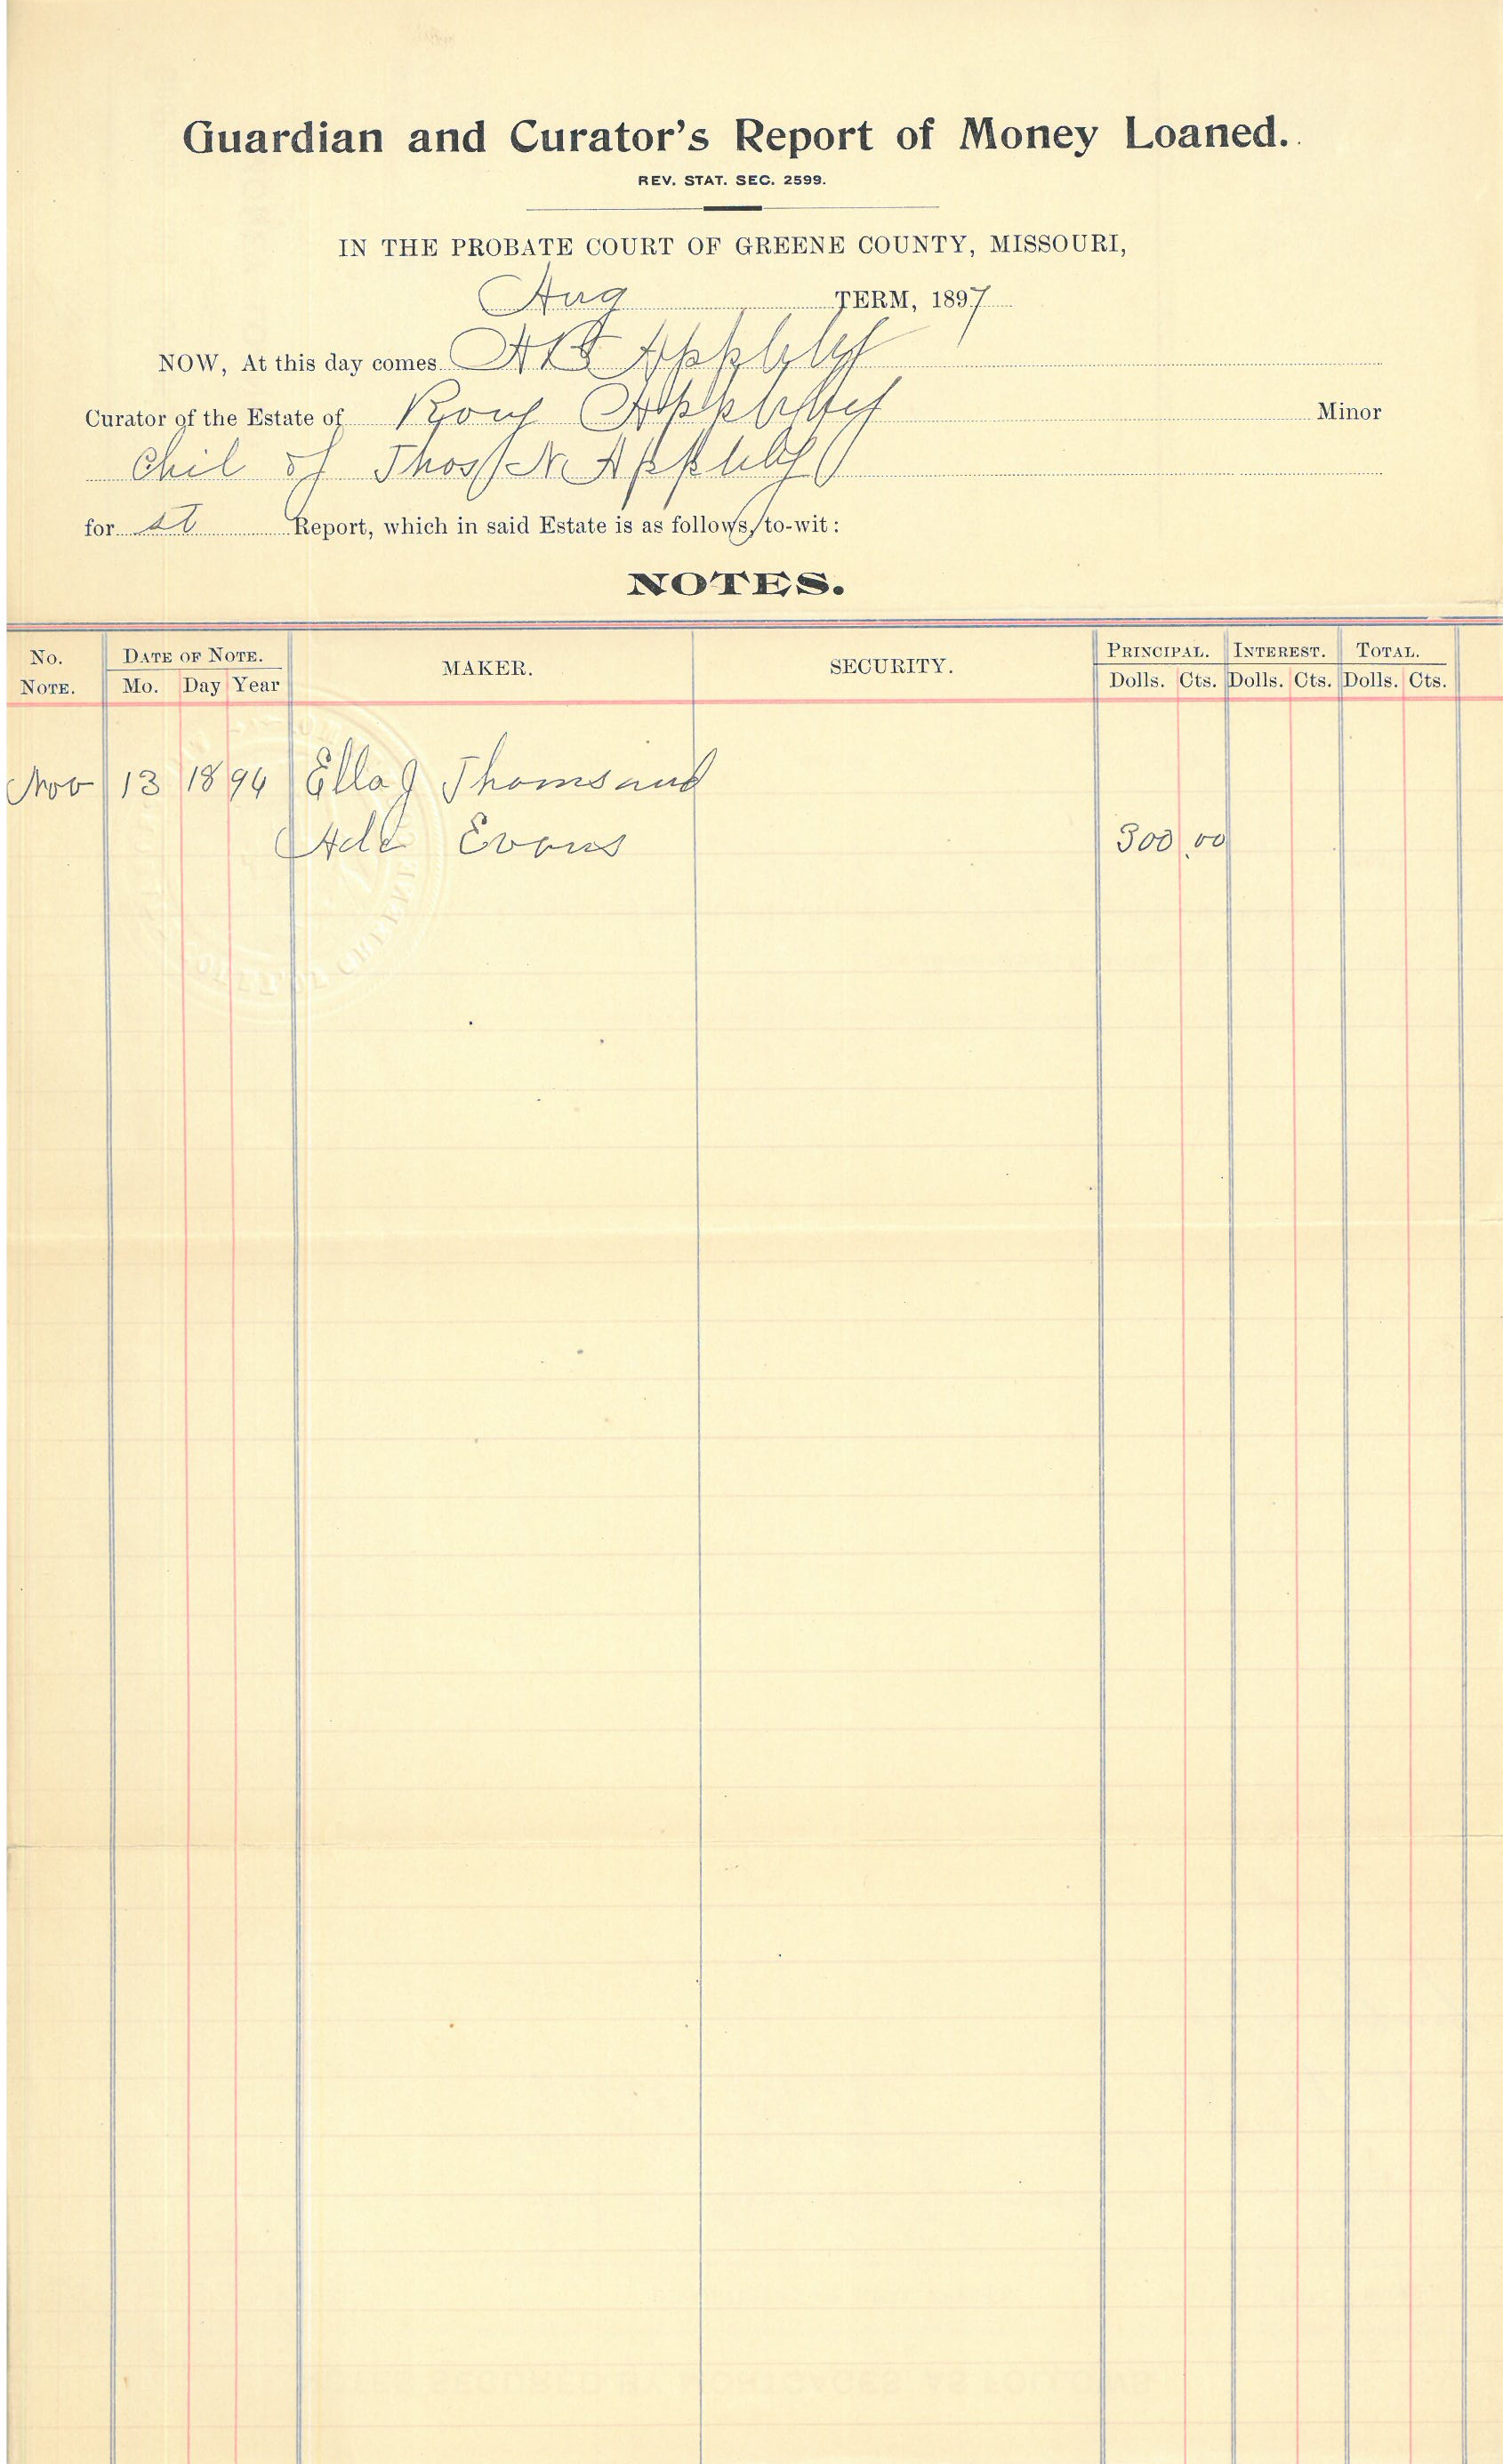 Guardian and Curator's Report of Money Loaned.
REV. STAT. SEC. 2599.
IN THE PROBATE COURT OF GREENE COUNTY, MISSOURI,
Aug TERM, 1897
NOW, At this day comes Appleby
Curator of the Estate of Roy Appleby Minor
Chil of Thos N Appleby
for st Report, which in said Estate is as follows, to-wit:
NOTES.
No. NOTE. DATE OF NOTE. Mo. Day Year MAKER. SECURITY. PRINCIPAL. Dolls. Cts. INTEREST. Dolls. Cts. TOTAL. Dolls. Cts.
Nov 13 1894 Ella J Thoms and
Ada Evans 300.00